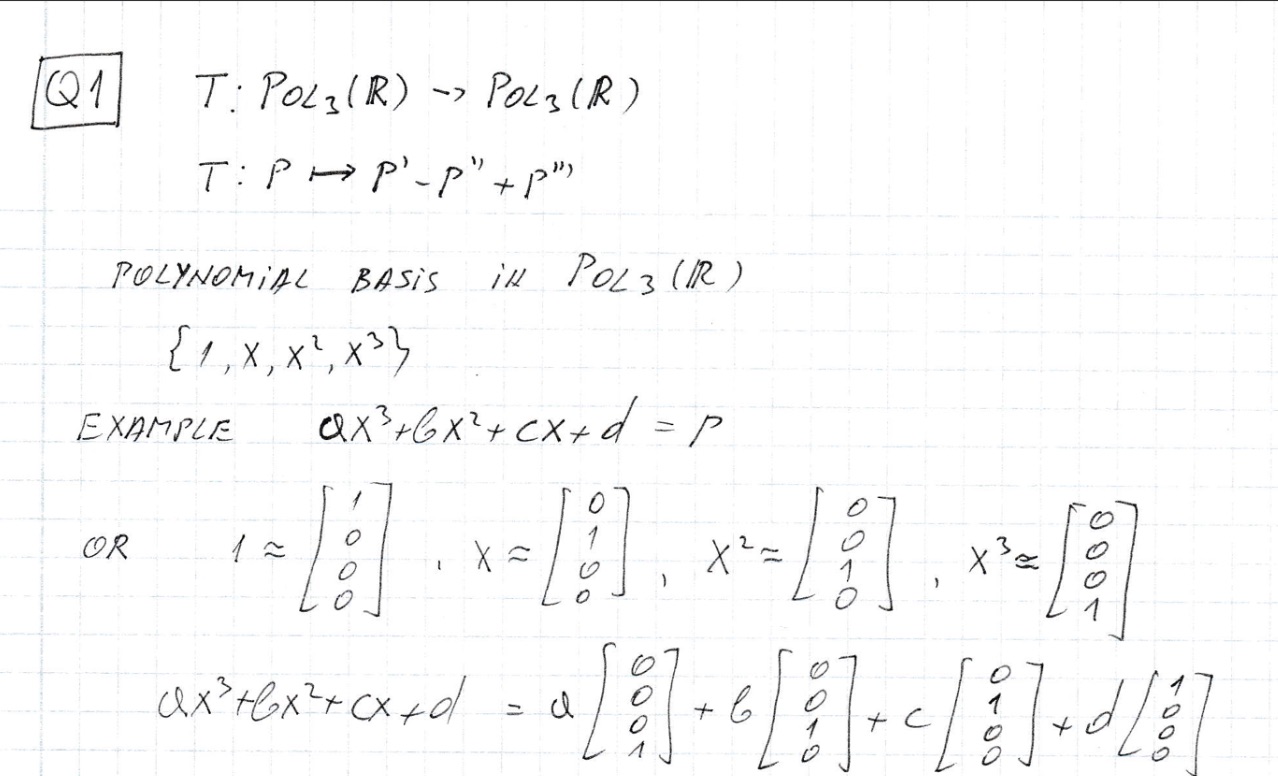 Q1 T: POL₃(ℝ) -> POL₃(ℝ)
T: P ↦ P' - P" + P"'
POLYNOMIAL BASIS IN POL₃(ℝ)
{1, X, X², X³}
EXAMPLE ax³+bx²+cx+d = P
OR 1 ≈ [1 0 0 0], X ≈ [0 1 0 0], X² ≈ [0 0 1 0], X³ ≈ [0 0 0 1]
ax³+bx²+cx+d = a[0 0 0 1] + b[0 0 1 0] + c[0 1 0 0] + d[1 0 0 0]